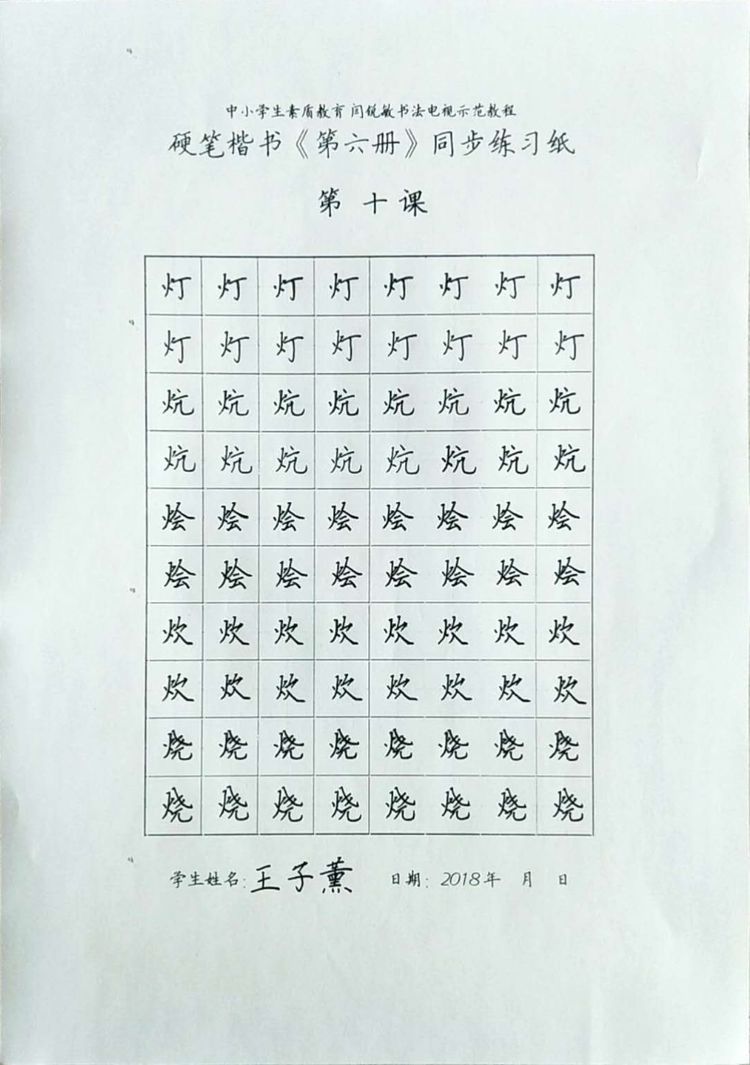 中小学生素质教育 闫锐敏书法电视示范教程
硬笔楷书《第六册》同步练习纸
第 十 课
灯 灯 灯 灯 灯 灯 灯 灯
灯 灯 灯 灯 灯 灯 灯 灯
炕 炕 炕 炕 炕 炕 炕 炕
炕 炕 炕 炕 炕 炕 炕 炕
烩 烩 烩 烩 烩 烩 烩 烩
烩 烩 烩 烩 烩 烩 烩 烩
炊 炊 炊 炊 炊 炊 炊 炊
炊 炊 炊 炊 炊 炊 炊 炊
烧 烧 烧 烧 烧 烧 烧 烧
烧 烧 烧 烧 烧 烧 烧 烧
学生姓名:王子薰 日期: 2018年 月 日